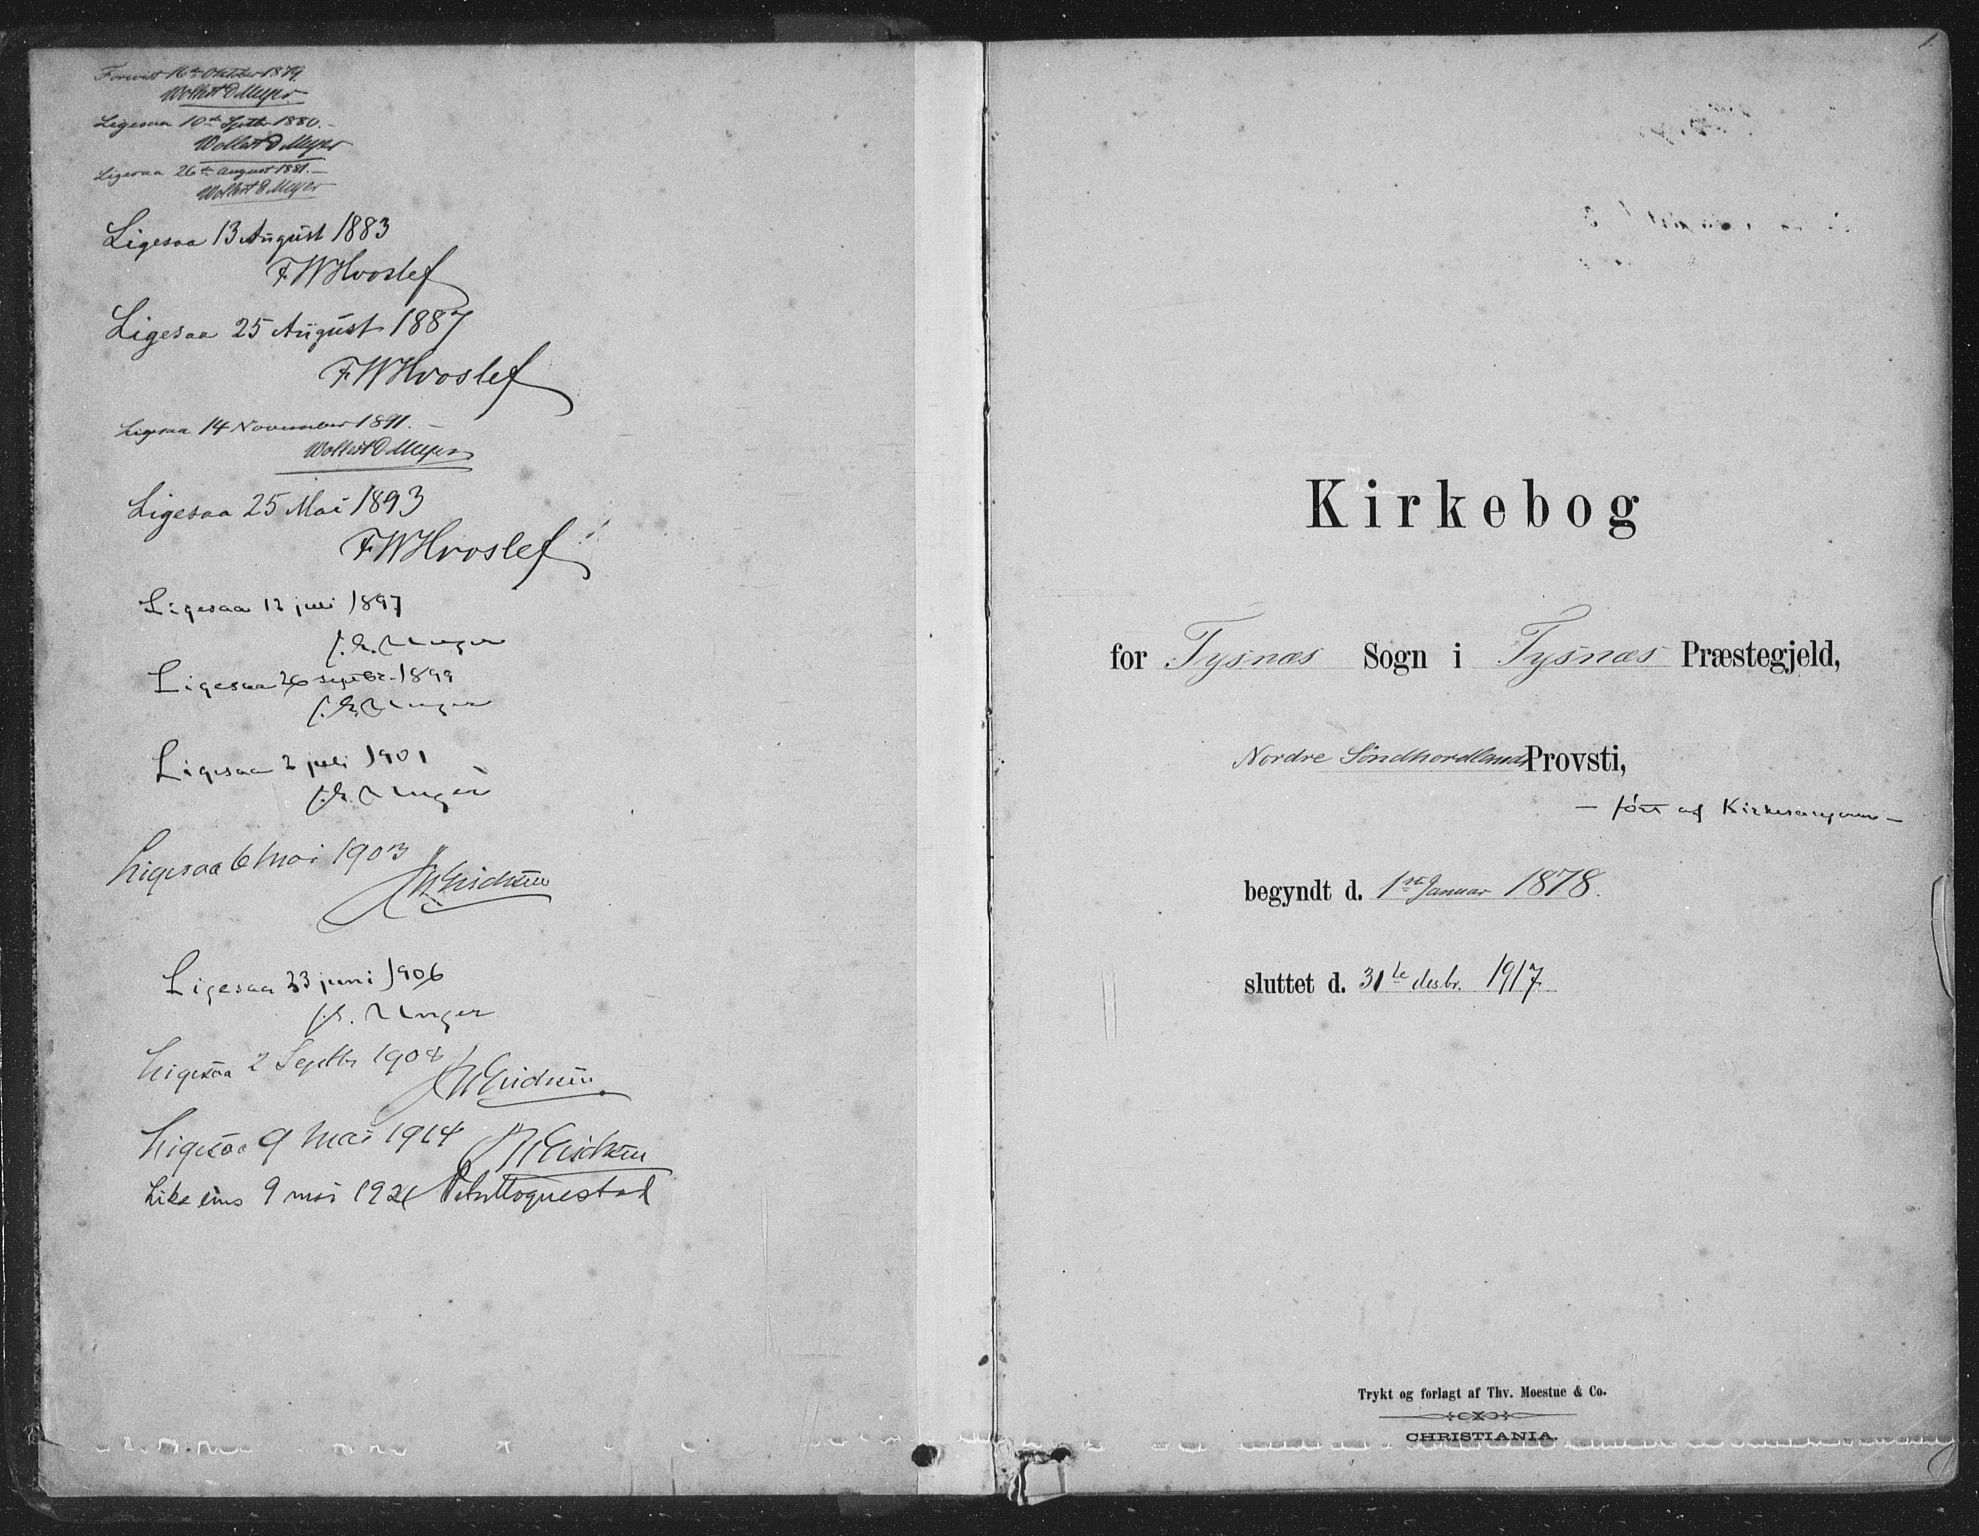 Forevist 16de Oktober 1879.
Wollert D Meyer
Ligesaa 10de Septbr 1880.-
Wollert D Meyer
Ligesaa 26de August 1881.-
Wollert D Meyer
Ligesaa 13 August 1883
F W Hvoslef
Ligesaa 25 August 1887
F W Hvoslef
Ligesaa 14 November 1891.-
Wollert D Meyer
Ligesaa 25 Mai 1893
F W Hvoslef
Ligesaa 12 juli 1897
Unger
Ligesaa 26 septbr. 1899
Unger
Ligesaa 2 juli 1901
Unger
Ligesaa 6 Mai 1903
Ligesaa 23 juni 1906
Unger
Ligesaa 2 Septbr 1908
Ligesaa 9 Mai 1914
Like eins 9 mai 1921
1.
Kirkebog
for Tysnæs Sogn i Tysnæs Præstegjeld,
Nordre Søndhordlands Provsti,
— ført af Kirkesangeren —
begyndt d. 1ste Januar 1878.
sluttet d. 31te desbr. 1917.
Trykt og forlagt af Thv. Moestue & Co.
CHRISTIANIA.